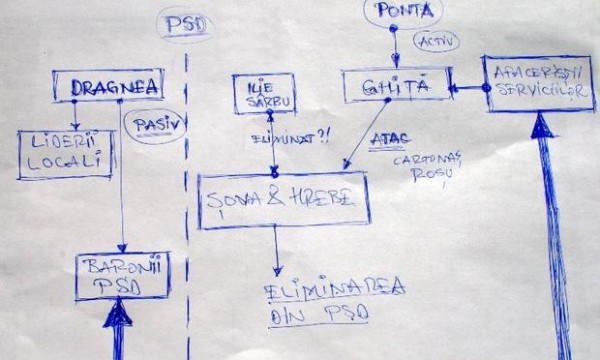 PSD
PONTA
ACTIV
DRAGNEA
ILIE
SÂRBU
GHIȚĂ
AFACERIȘTII
SERVICIILOR
PASIV
LIDERII
LOCALI
ELIMINAT?!
ATAC
CARTONAȘ
ROȘU
ȘOVA & HREBE
BARONII
PSD
ELIMINAREA
DIN PSD